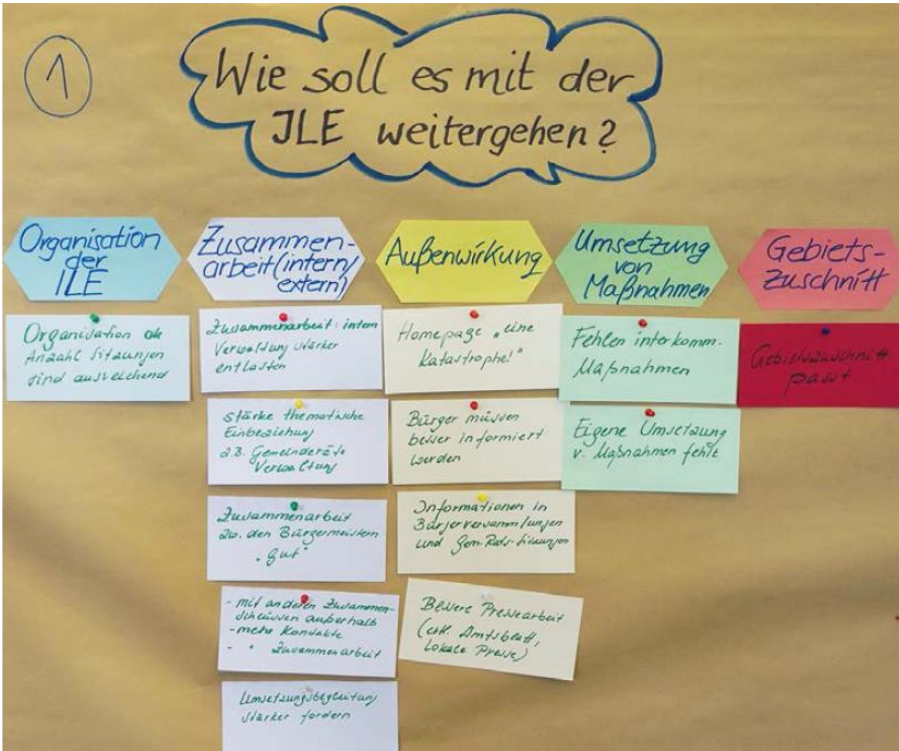 1
Wie soll es mit der
ILE weitergehen?
Organisation
der
ILE
Organisation ok
Anzahl Sitzungen
sind ausreichend
Zusammen-
arbeit (intern/
extern)
Zusammenarbeit: intern
Verwaltung stärker
entlasten
stärke thematische
Einbeziehung
z.B. Gemeinderäte
Verwaltung
Zusammenarbeit
zw. den Bürgermeistern
"gut"
- mit anderen Zusammen-
schlüssen außerhalb
- mehr Kontakte
- " Zusammenarbeit
Umsetzungsbegleitung
stärker fordern
Außenwirkung
Homepage „eine
Katastrophe!"
Bürger müssen
besser informiert
werden
Informationen in
Bürgerversammlungen
und Gem.Rats-Sitzungen
Bessere Pressearbeit
Amtsblatt,
Lokale Presse)
Umsetzung
von
Maßnahmen
Fehlen interkomm.
Maßnahmen
Eigene Umsetzung
v. Maßnahmen fehlt
Gebiets-
Zuschnitt
Gebietszuschnitt
passt